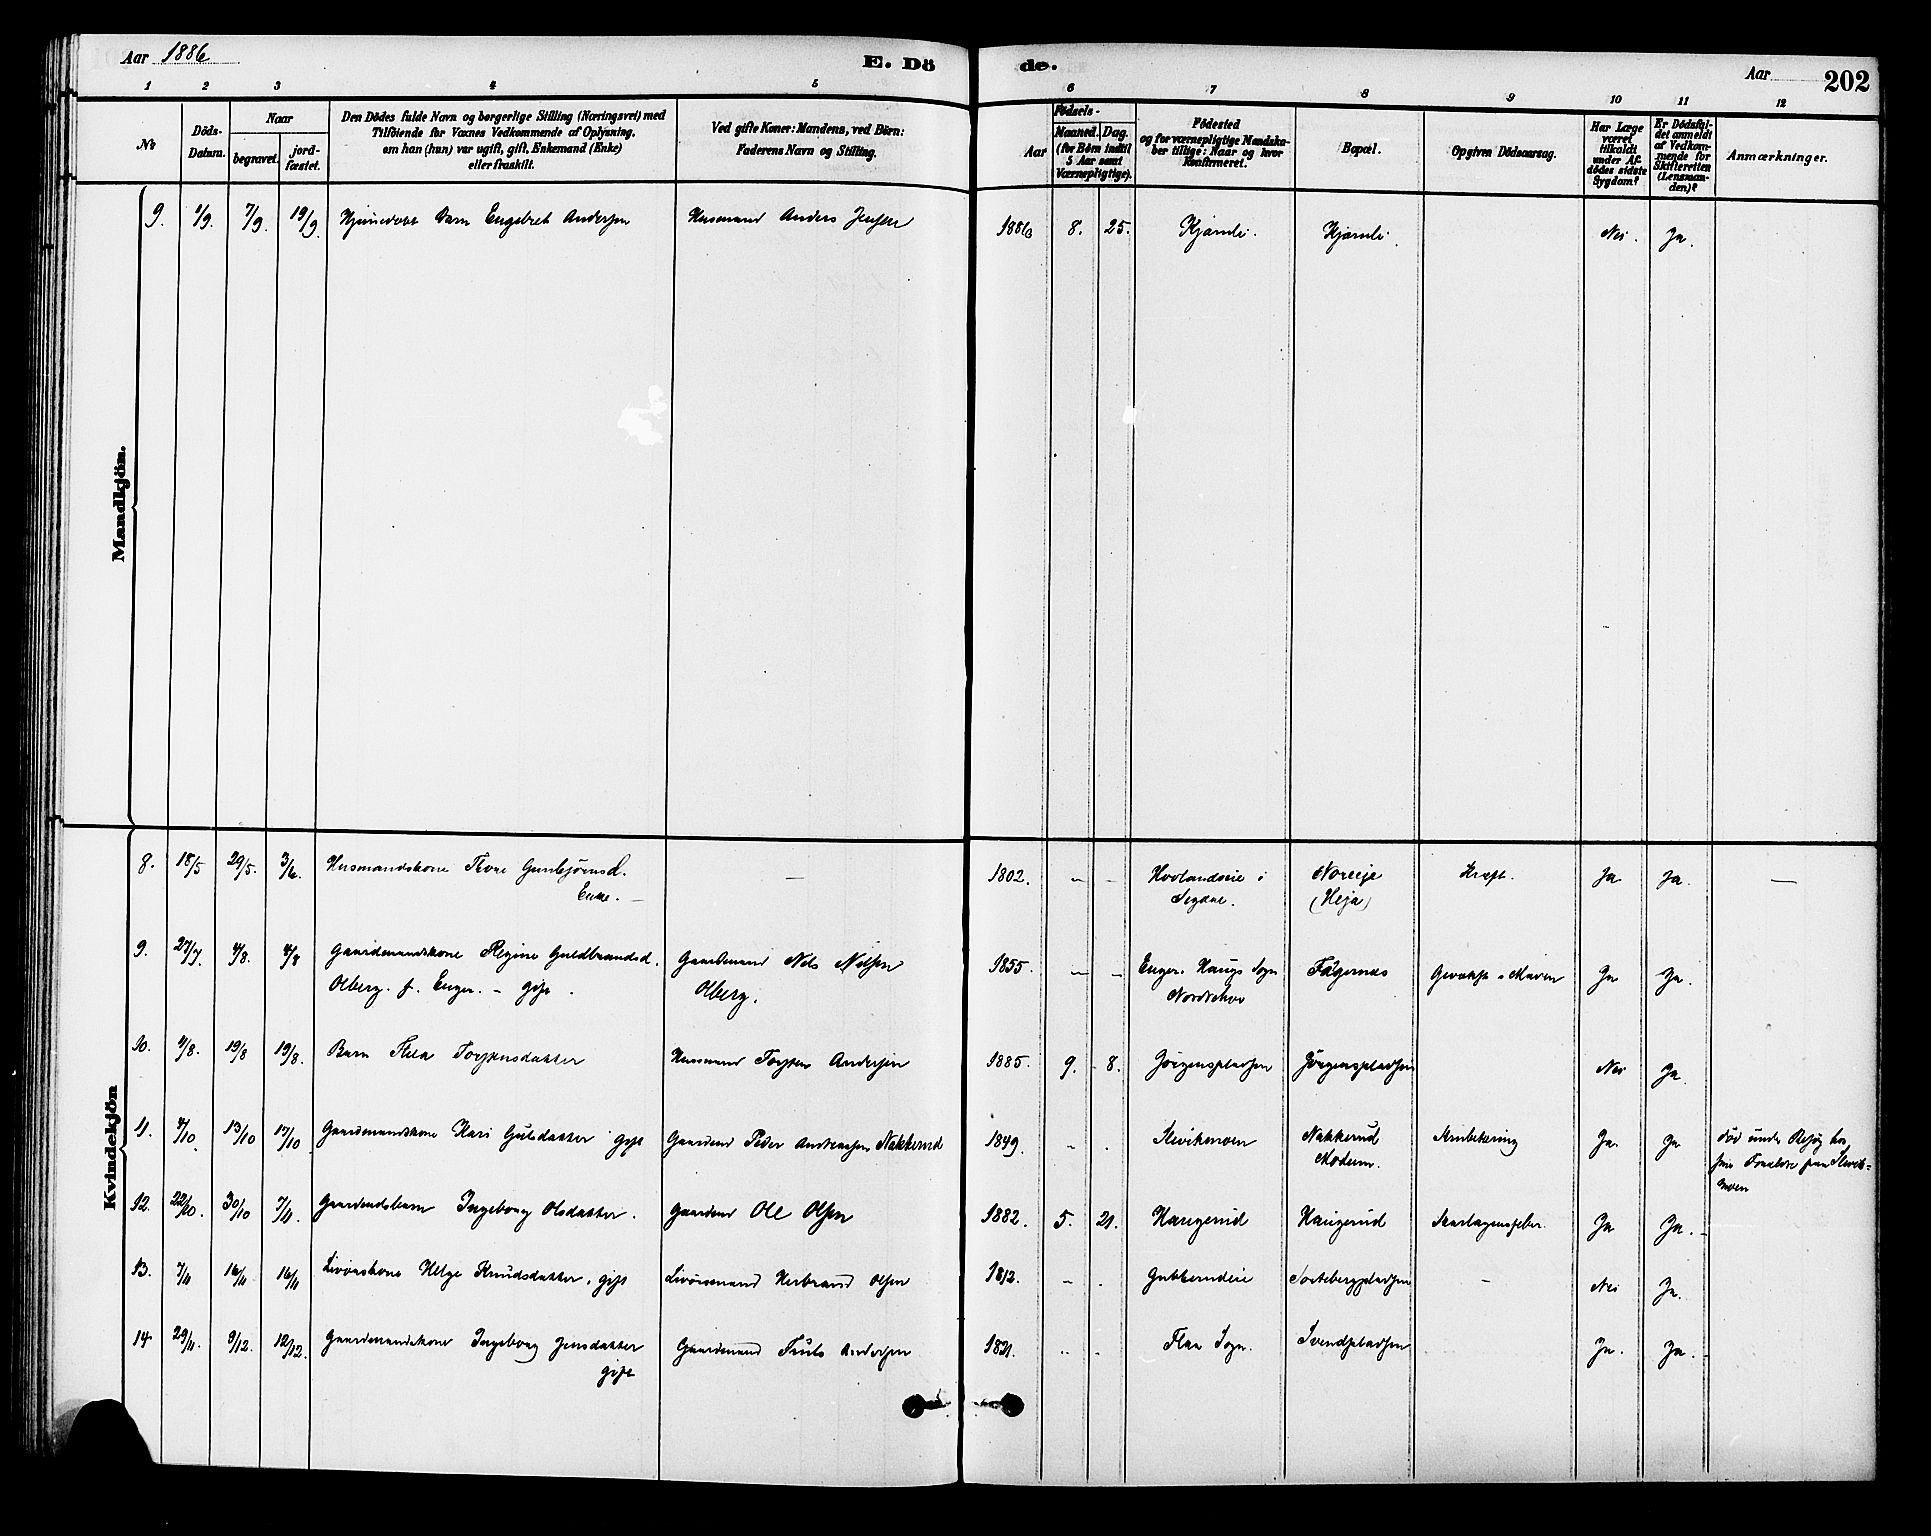 Aar 1886
E. Dö
de.
Aar
202
1 2 3 4 5 6 7 8 9 10 11 12
No
Döds-
Datum.
Naar
begravet.
jord-
fæstet.
Den Dödes fulde Navn og borgerlige Stilling (Næringsvei) med
Tilföiende for Voxnes Vedkommende af Oplysning,
om han (hun) var ugift, gift, Enkemand (Enke)
eller fraskilt.
Ved gifte Koner: Mandens, ved Börn:
Faderens Navn og Stilling.
Födsels-
Aar
Maaned. Dag.
(for Börn indtil
5 Aar samt
Værnepligtige).
Födested
og for værnepligtige Mandska-
ber tillige: Naar og hvor
Konfirmeret.
Bopæl.
Opgiven Dödsaarsag.
Har Læge
været
tilkaldt
under Af-
dödes sidste
Sygdom?
Er Dödsfal-
det anmeldt
af Vedkom-
mende for
Skifteretten
(Lensman-
den)?
Anmærkninger.
Mandkjön.
9. 1/9. 7/9. 19/9. Hjemmedöbt Barn Engebret Andersen Husmand Anders Jensen 1886 8. 25. Kjørnli. Kjørnli. Nei. Ja.
Kvindekjön
8. 18/5 29/5. 3/6. Husmandskone Thore Gunbjörnsd. — 1802. Hovlandseie i Noreeje Kræft. Ja Ja. —
Enke. — Sigdal. (Heja)
9. 27/7. 4/8. 4/8 Gaardmandskone Regine Guldbrandsd. Gaardmand Nels Nilsen 1855. Enger. Haugs Sogn Fagernæs Gevækst i Maven Ja Ja.
Olberg. f. Enger. — gift. Olberg. Nordrehov
10. 4/8. 19/8 19/8. Barn Torstensdatter Husmand Torsten Andersen 1885. 9. 8. Jörgenspladsen Jörgenspladsen Nei Ja.
11. 4/10. 13/10 17/10 Gaardmandskone Kari Gulsdatter gift Gaardmd Peder Andreassen Nakkerud 1849. Skvikenoen Nakkerud Ja. Ja död under Besög hos
Modum. sine Forældre paa
moen
12. 22/10. 30/10 7/11. Gaardmdsbarn Ingeborg Olsdatter. Gaardmd Ole Olsen 1882. 5. 21. Haugerud Haugerud Skarlagensfeber. Ja Ja. -
13. 7/11 16/11 16/11 Livöreskone Helge Knudsdatter, gift Livöremand Herbrand Olsen 1812. Gubberudeie Sortebergpladsen — Nei Ja.
14 29/11. 9/12. 12/12. Gaardmandskone Ingeborg Jensdatter Gaardmand Truls Andersen 1821. Flaa Sogn. Svendspladsen Ja. Ja. -
gift